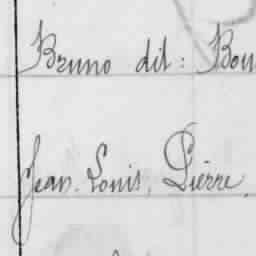 Bruno dit: Bou
Jean. Louis, Pierre.